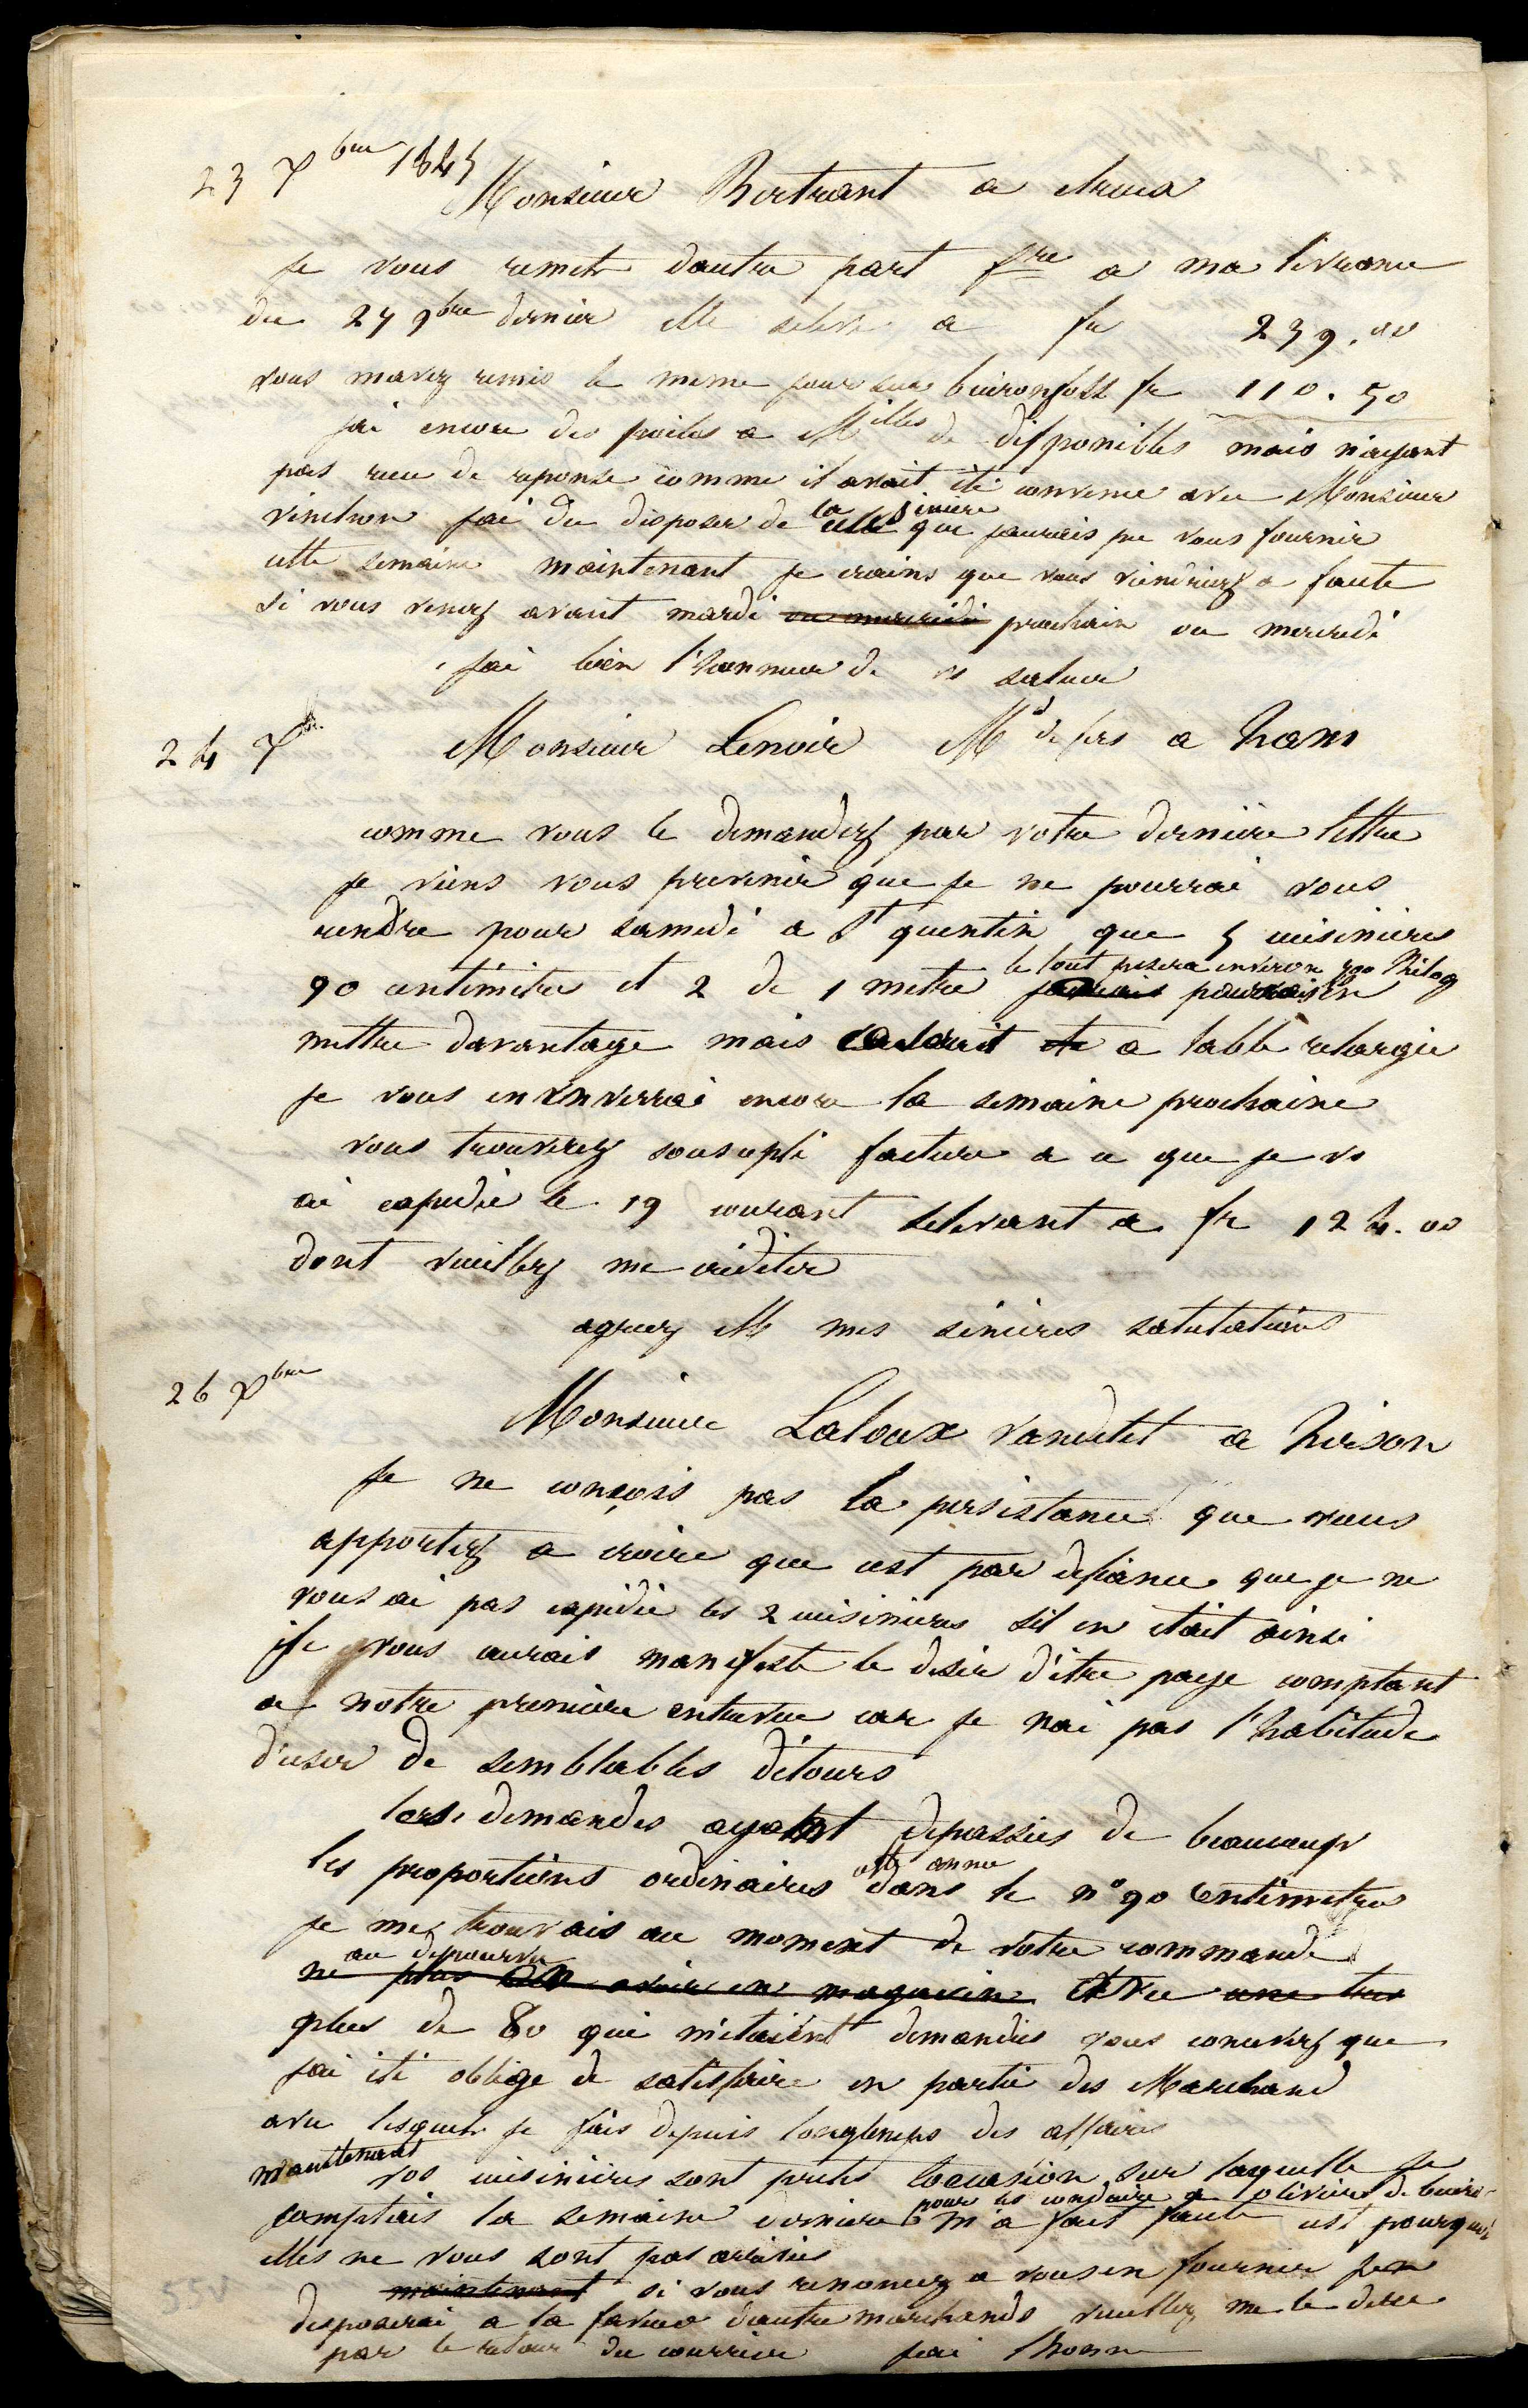 23 Xbre 1845
Monsieur Bertrant a
Je vous remets dautre part fre a ma livrance
du 27 9bre dernier elle seleve a fr 239.00
vous mavez remis le meme jour sur buironfosse fr 110.50
jai encore des poiles a Mlles de disponibles mais n'ayant
pas recu de reponse comme il avait été convenu avec Monsieur
vinchon jai du disposer de la que jaurais pu vous fournir
cette semaine maintenant je crains que vous viendriez a faute
si vous venez avant mardi ou mercredi prochain ou mercredi
jai bien l'honneur de vs saluer
24 Xbre
Monsieur Lenoir Md de fers a ham
comme vous le demandez par votre derniere lettre
je viens vous prevenir que je ne pourrai vous
rendre pour samedi a St quentin que 5 cuisinieres
90 centimetre et 2 de 1 metre le tout pesera environ 500 Kilog pourrais en
mettre davantage mais a table rechargée
je vous en enverrai encore la semaine prochaine
vous trouverez sous ce pli facture a ce que je vs
ai expedié le 19 courant selevant a fr 124.00
dont veuillez me créditer
agreez M mes sinceres salutations
26 Xbre
Monsieur Laloux vandelet a hirson
Je ne conçois pas la persistance que vous
apportez a croire que cest par defiance que je ne
vous ai pas expédié les 2 cuisinieres sil en était ainsi
je vous aurais manifesté le desir d'être payé comptant
a notre premiere entrevue car je nai pas l'habitude
d'user de semblables détours
les demandes ayant depassées de beaucoup
les proportions ordinaires cette année dans le n° 90 Centimetre
je me trouvais au moment de votre commande
au depourvu
ne plus en avoir en magasin et vu une tres
plus de 80 qui m'etaient demandés vous concevez que
jai été obligé de satisfaire en partie des Marchand
avec lesquels je fais depuis longtemps des affaires
maintenant vos cuisinieres sont pretes loccasion sur laquelle je
comptais la semaine derniere pour les conduire a olivier de buiron m'a fait faute cest pourquoi
elles ne vous sont pas arrivées
maintenant si vous renoncez a vous en fournir jen
disposerai a la faveur dautre marchands veuillez me le dire
par le retour du courrier jai lhonn
55V